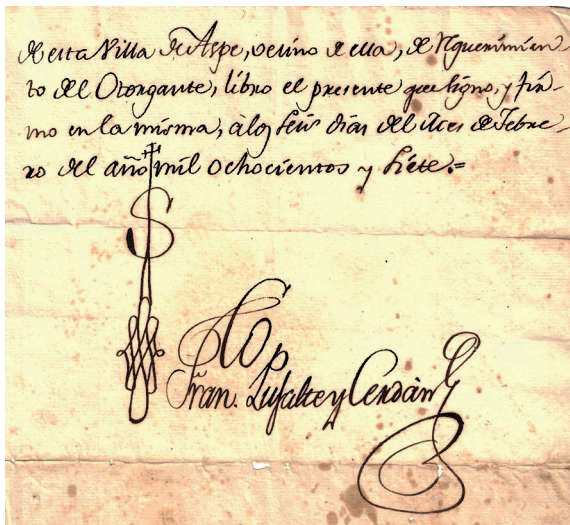 de esta Villa de Aspe, vecino de ella, de requerimien
to del Otorgante, libro el presente que signo, y fir-
mo en la misma, à los seis dias del Mes de Febre-
ro del año mil ochocientos y siete.=
Fran. Pujalte y Cerdàn